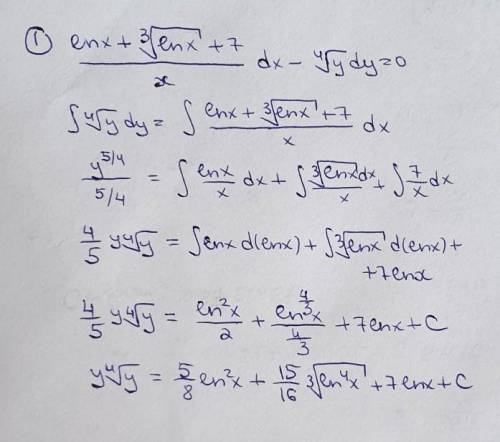 ① (ℓnx + ∛(ℓnx) + 7)/x dx − ∜y dy = 0
∫ ∜y dy = ∫ (ℓnx + ∛(ℓnx) + 7)/x dx
y^(5/4)/(5/4) = ∫ ℓnx/x dx + ∫ ∛(ℓnx) dx/x + ∫ 7/x dx
4/5 y∜y = ∫ ℓnx d(ℓnx) + ∫ ∛(ℓnx) d(ℓnx) +
+7ℓnx
4/5 y∜y = ℓn²x/2 + ℓn^(4/3)x/(4/3) + 7ℓnx + C
y∜y = 5/8 ℓn²x + 15/16 ∛(ℓn⁴x) + 7ℓnx + C